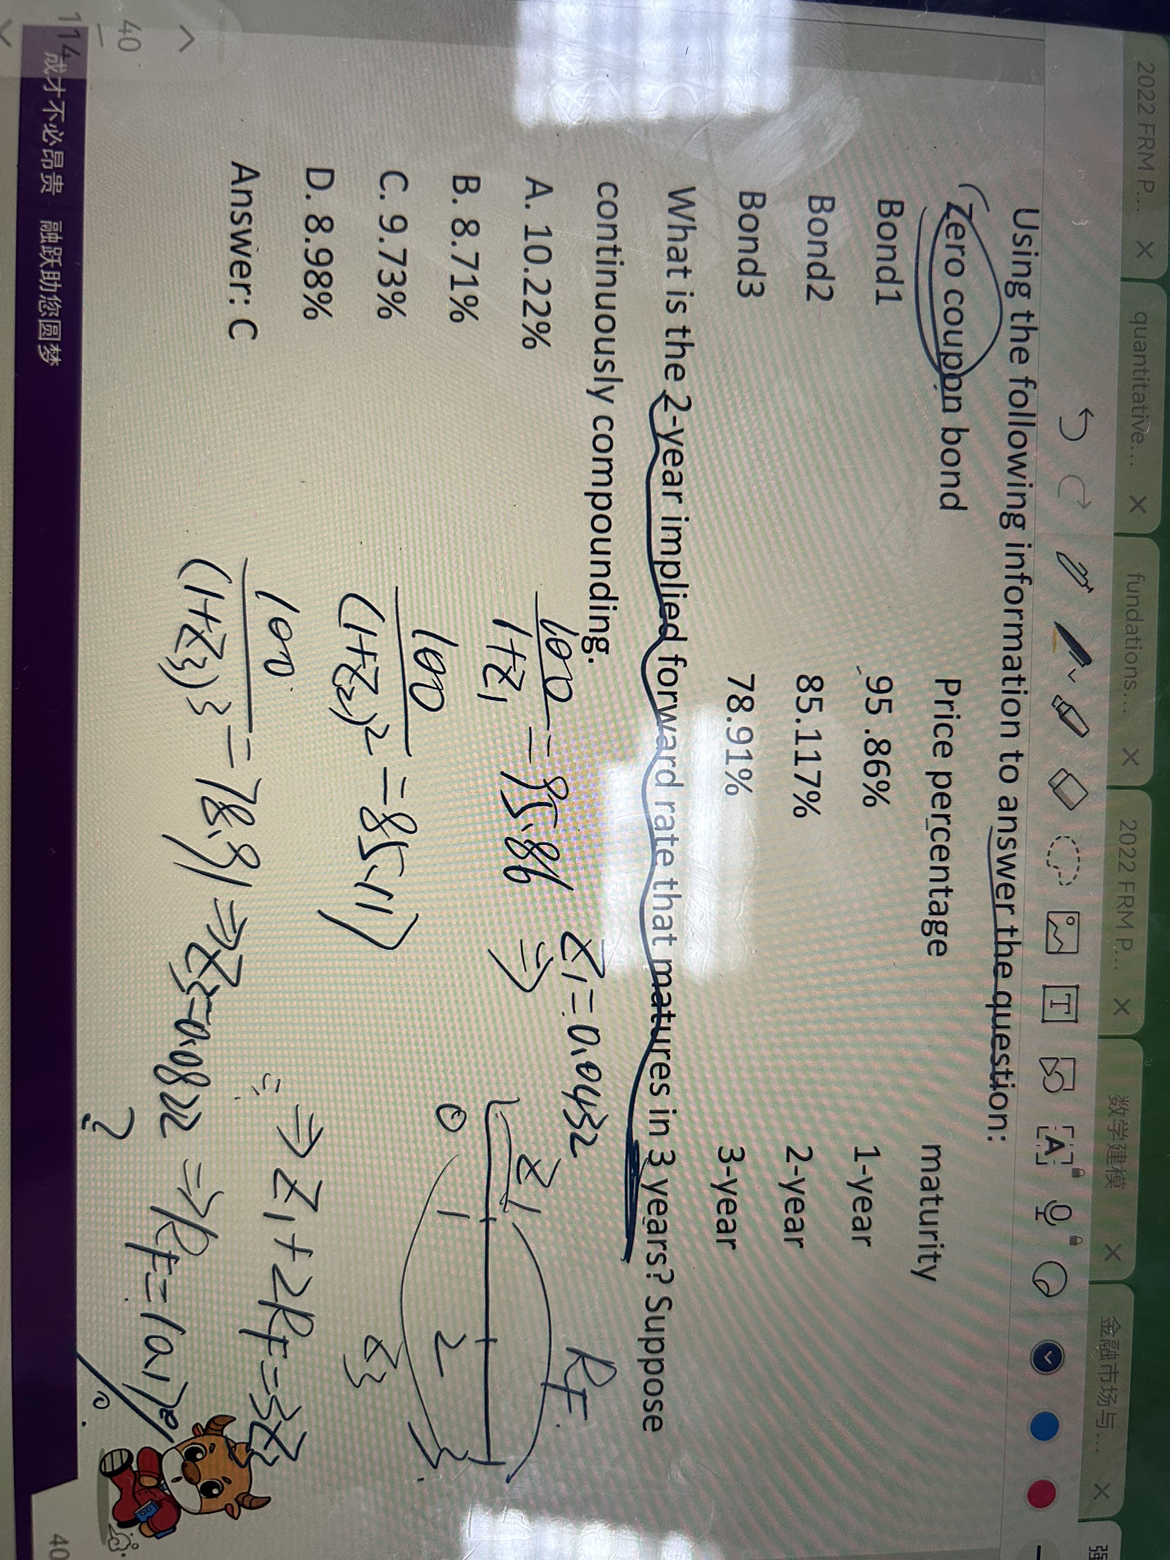 2022 FRM P... × quantitative... × fundations... × 2022 FRM P... × 数学建模 × 金融市场与... × 强
Using the following information to answer the question:
Zero coupon bond Price percentage maturity
Bond1 95 .86% 1-year
Bond2 85.117% 2-year
Bond3 78.91% 3-year
What is the 2-year implied forward rate that matures in 3 years? Suppose
continuously compounding.
A. 10.22%
B. 8.71%
C. 9.73%
D. 8.98%
Answer: C
100/(1+Z1) = 95.86 ⇒ Z1=0.0432
100/(1+Z2)² = 85.117
100/(1+Z3)³ = 78.91 ⇒ Z3=0.0822 ⇒ RF=10.17%
?
Z1 RF
0 1 2 3
Z3
∴ ⇒ Z1+2RF=3Z3
114 成才不必昂贵 融跃助您圆梦
40
40